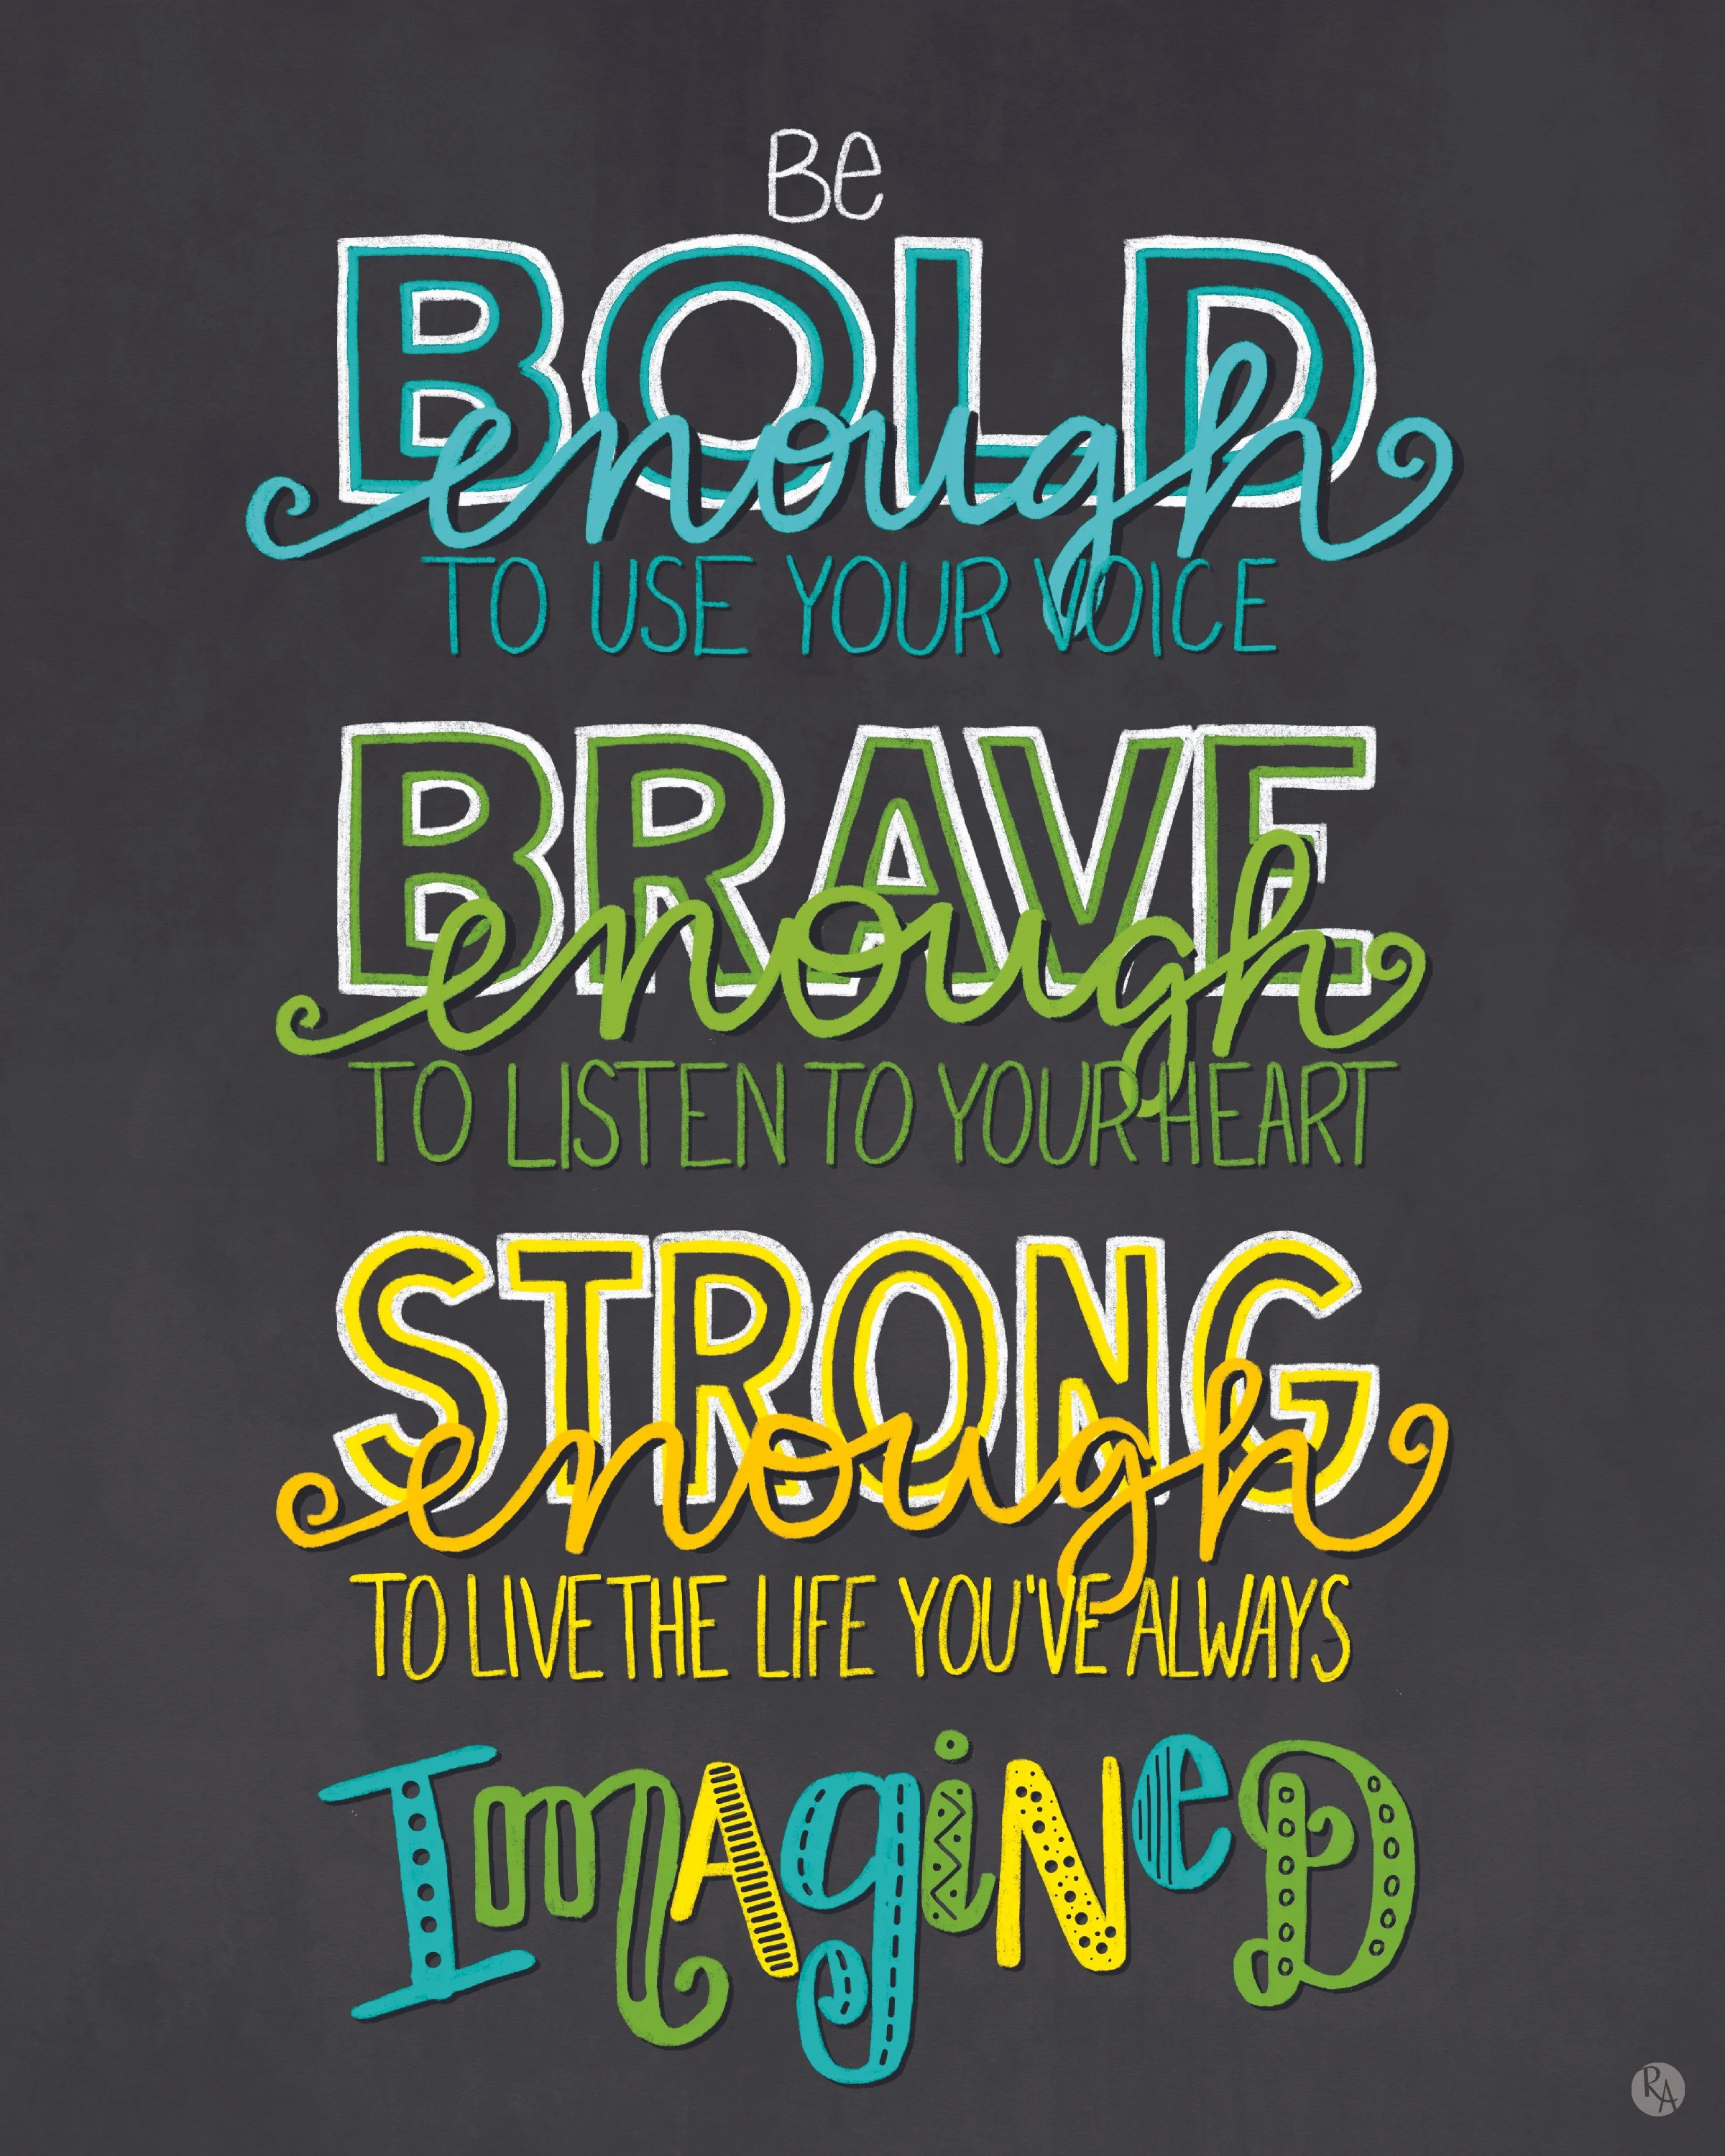 Be
BOLD
enough
TO USE YOUR VOICE
BRAVE
enough
TO LISTEN TO YOUR HEART
STRONG
enough
TO LIVE THE LIFE YOU'VE ALWAYS
ImAgiNeD
RA